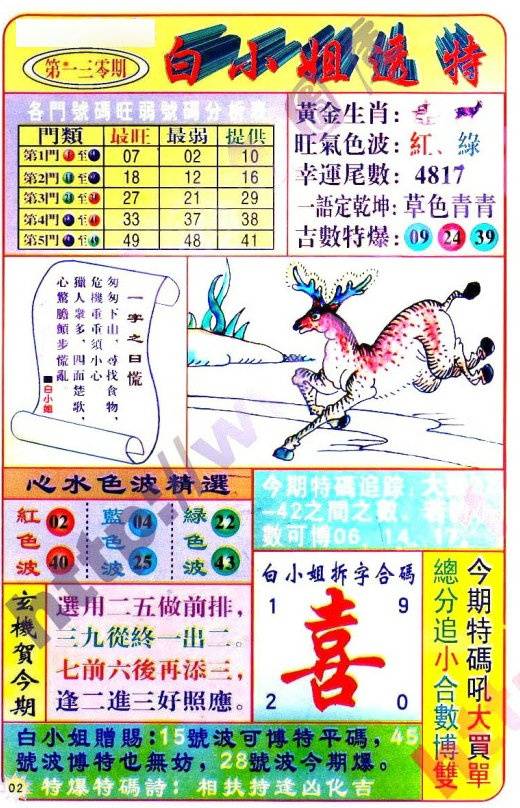 第一三零期
白小姐透特
各門號碼旺弱號碼分析表
門類 最旺 最弱 提供
第1門 至 07 02 10
第2門 至 18 12 16
第3門 至 27 21 29
第4門 至 33 37 38
第5門 至 49 49 48 41
黃金生肖:
旺氣色波: 紅、綠
幸運尾數: 4817
一語定乾坤: 草色青青
吉數特爆: 09 24 39
一字之曰慌
匆匆下山,尋找食物,
危機重重須小心
獵人衆多,四面楚歌,
心驚膽顫步慌亂。
白小姐
心水色波精選
紅色波 02 40
藍色波 04 25
綠色波 22 43
今期特碼追踪:大
-42之間之數,
數可博06、14、17
玄機賀今期
選用二五做前排,
三九從終一出二。
七前六後再添三,
逢二進三好照應。
白小姐拆字合碼
1 9
喜
2 0
今期特碼吼大買單
總分追小合數博雙
白小姐贈賜:15號波可博特平碼,45
號波博特也無妨,28號波今期爆。
特爆特碼詩: 相扶持逢凶化吉
02
http://w